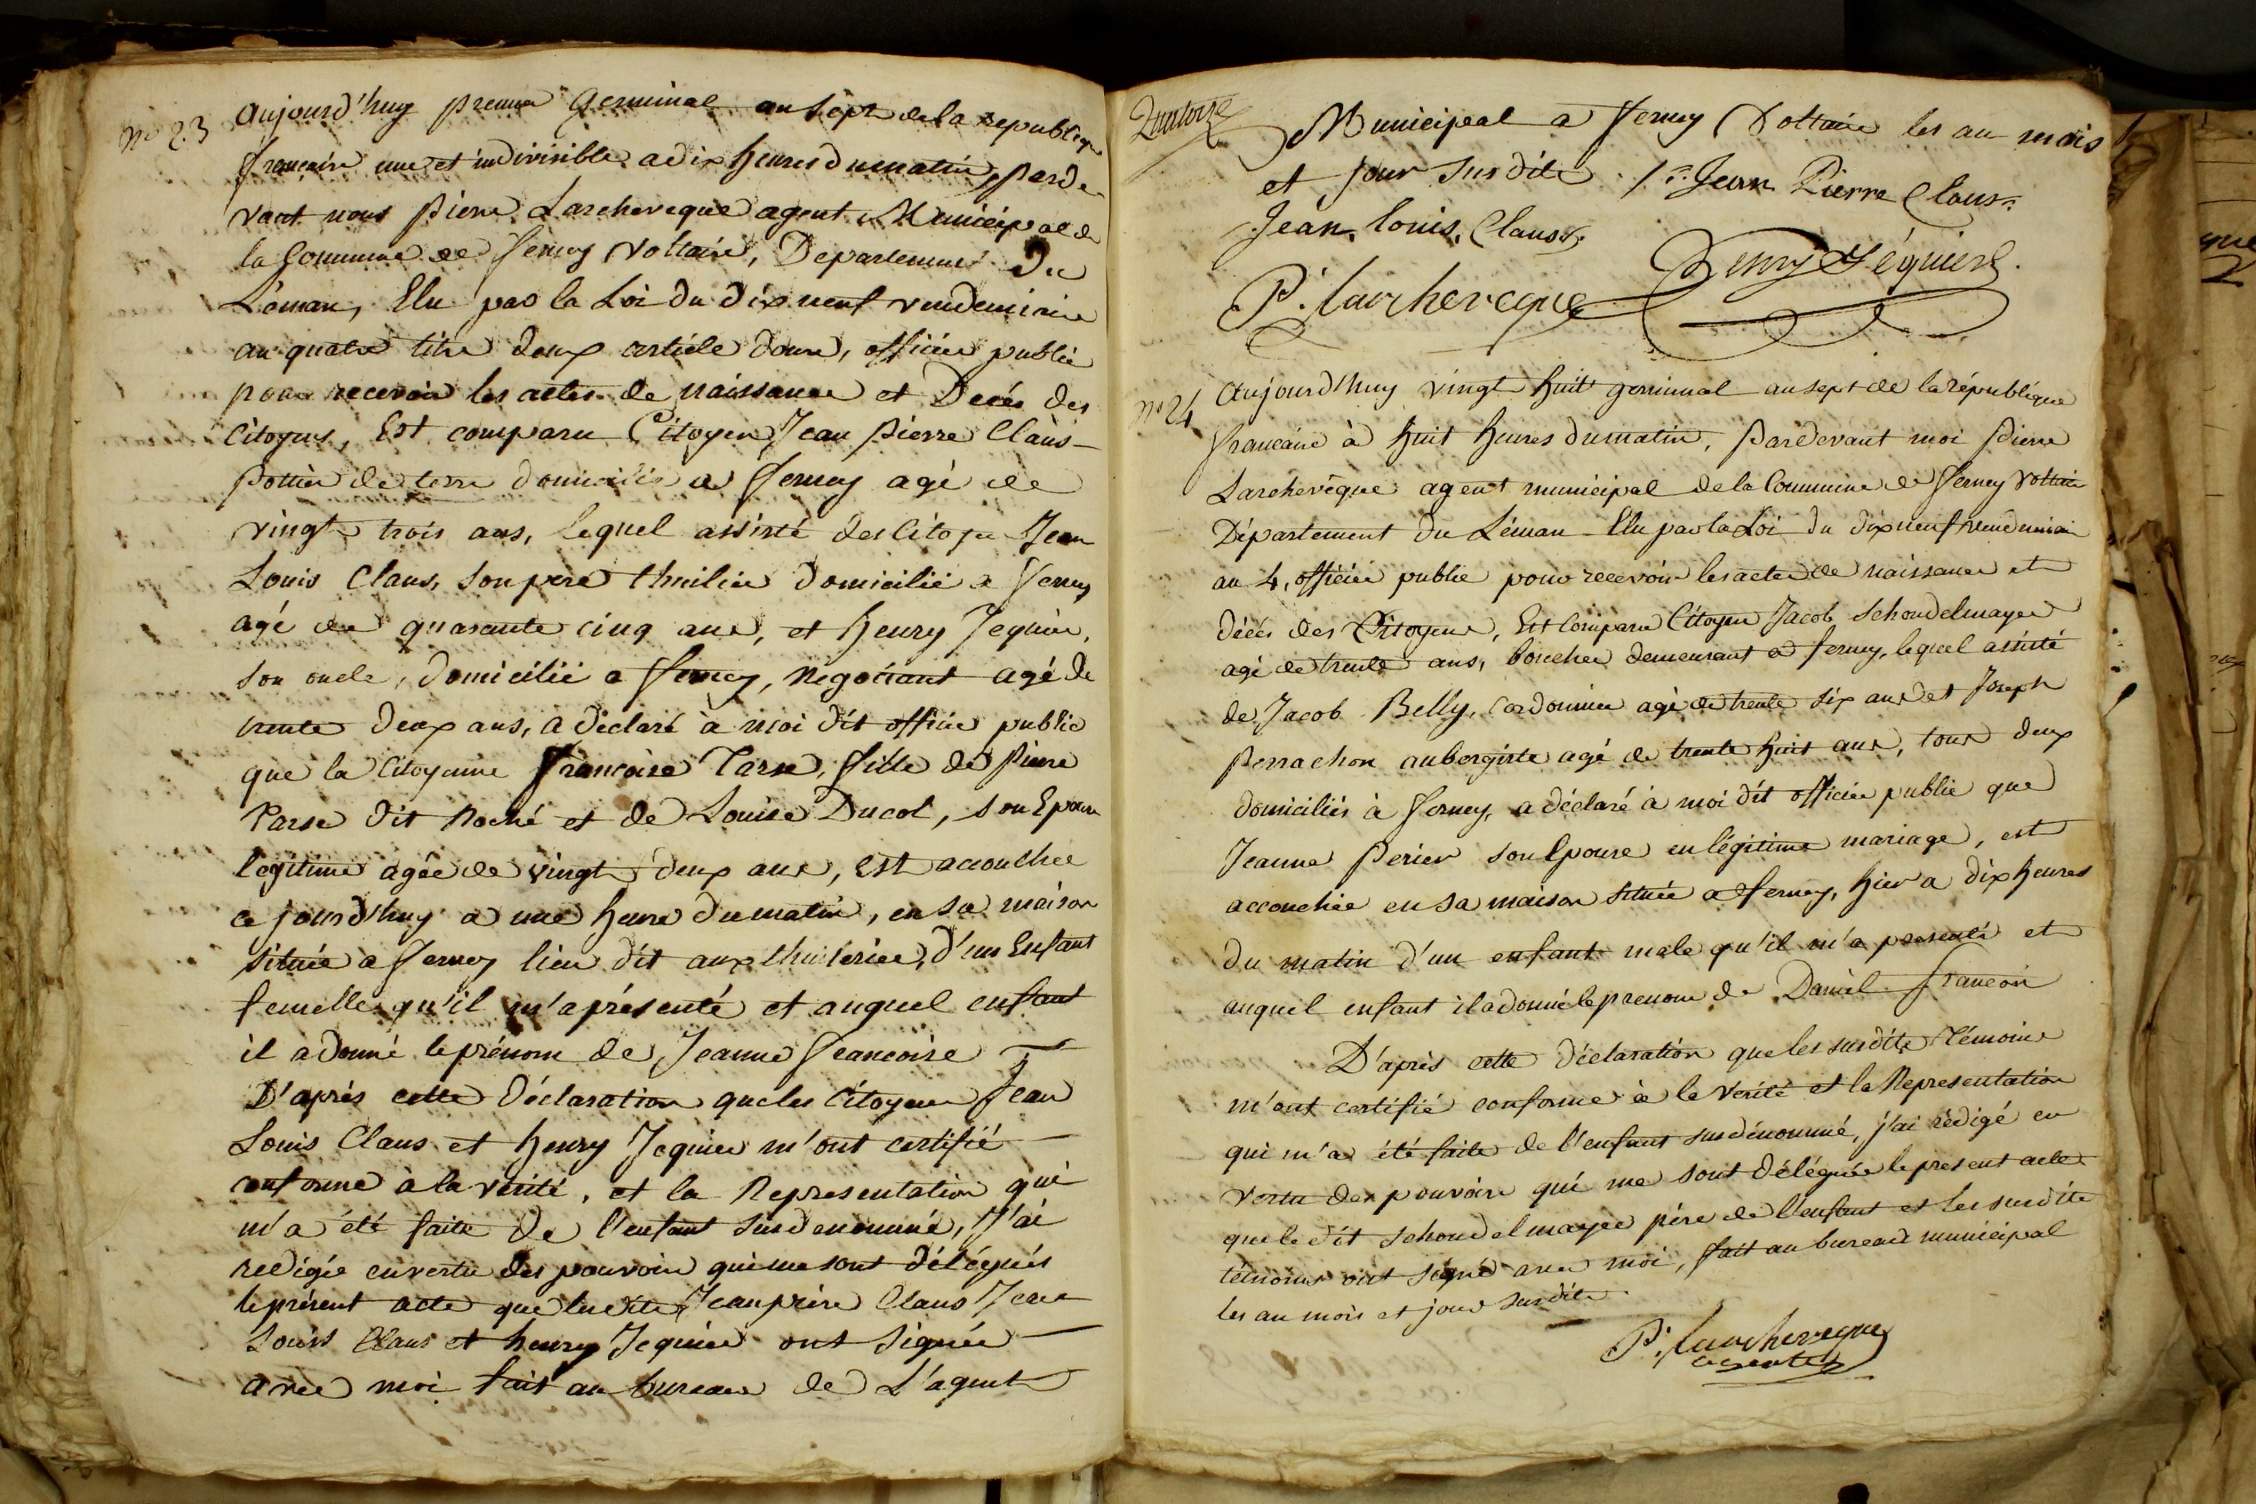 No 23
Aujourd'huy premier Germinal an sept de la republique
francaise une et indivisible a dix heures du matin, parde
vant nous Pierre Larcheveque agent Municipal de
la Commune de Ferney Voltaire, Departement Du
Léman, Elu par la Loi du dix neuf vendemiaire
an quatre titre deux article douze, officier public
pour recevoir les actes de naissance et Decés des
Citoyens, Est comparu Citoyen Jean Pierre Claus
pottier de terre domicilié a Ferney agé de
vingt trois ans, lequel assisté des Citoyen Jean
Louis Claus, son pere thuilier domicilié a Ferney
agé de quarante cinq ans, et henry Jequier,
son oncle, domicilié a Ferney, negotiant agé de
trente deux ans, a déclaré à moi dit officier public
que la Citoyenne Françoise Tarse, fille de Pierre
Tarse dit Roché et de Louise Ducot, son Epouse
legitime agée de vingt deux ans, est accouchée
ce jourd'huy a une heure du matin, en sa maison
située a Ferney lieu dit aux thuileries, d'un Enfant
femelle qu'il m'a présenté et auquel enfant
il a donné le prénom de Jeanne Francoise
D'aprés cette Déclaration que les Citoyens Jean
Louis Claus et henry Jequier m'ont certifié
conforme à la vérité, et la Representation qui
m'a été faite de l'enfant susdenommé, J'ai
redigé en vertu des pouvoirs qui me sont délégués
le présent acte que lesdits Jean pierre Claus Jean
Louis Claus et henry Jequier ont signés
avec moi fait au bureau de L'agent
Municipal a Ferney Voltaire les an mois
et jour susdits. Jean Pierre Claus
Jean, louis, Claus
Henry Jéquier
P. Larcheveque
No 24
Aujourd'huy vingt huit germinal an sept de la république
francaise à huit heures du matin, Pardevant moi Pierre
Larchevêque agent municipal de la Commune de Ferney Voltaire
Département du Léman Elu par la Loi du dix neuf vendemiaire
an 4, officier public pour recevoir les actes de naissance et
décés des Citoyens, Est comparu Citoyen Jacob Schoudelmayer
agé de trente ans, boucher demeurant a ferney, lequel assisté
de Jacob Belly, Cordonnier agé de trente six ans et Joseph
Perrachon aubergiste agé de trente huit ans, tous deux
domiciliés à Ferney, a déclaré à moi dit officier public que
Jeanne Perier son Epouse en légitime mariage, est
accouchée en sa maison située a ferney, hier a dix heures
du matin d'un enfant male qu'il m'a presenté et
auquel enfant il a donné le prenom de Daniel Francois
D'après cette déclaration que les susdits témoins
m'ont certifié conforme à la verité et la Representation
qui m'a été faite de l'enfant susdénommé, j'ai rédigé en
vertu des pouvoirs qui me sont délégués le present acte
que le dit schoudelmayer pére de l'enfant et les susdits
témoins ont signé avec moi, fait au bureau municipal
les an mois et jour susdits
P. Larcheveque
agent